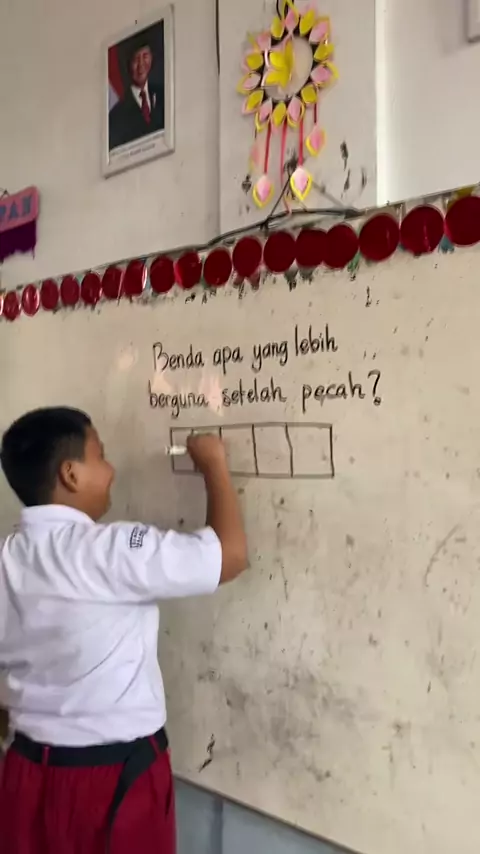 PAK
Benda apa yang lebih
berguna setelah pecah?